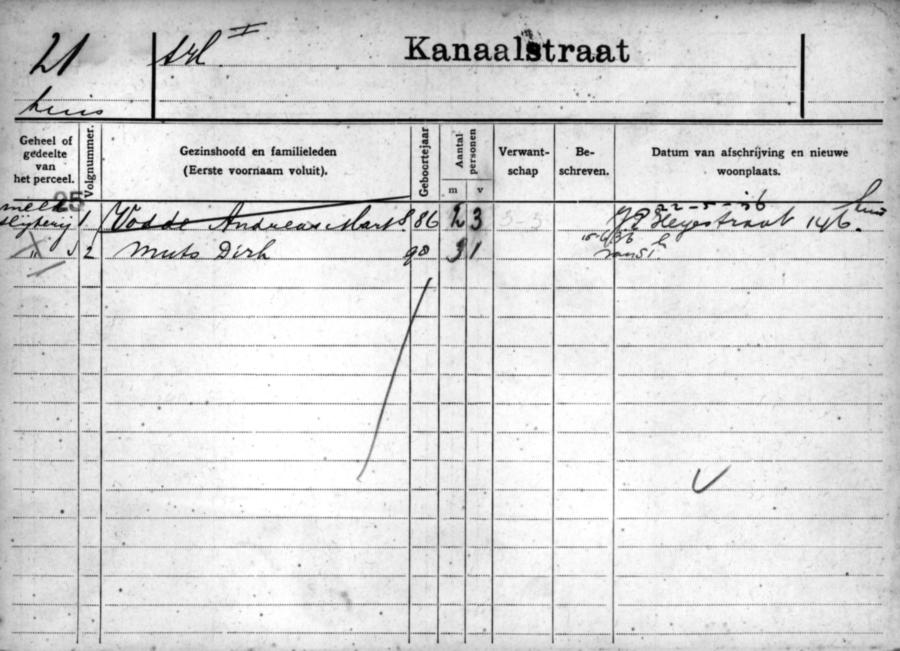 21
huis
Kanaalstraat
Geheel of gedeelte van het perceel.
Volgnummer.
Gezinshoofd en familieleden
(Eerste voornaam voluit).
Geboortejaar
Aantal personen
m v
Verwant-
schap
Be-
schreven.
Datum van afschrijving en nieuwe
woonplaats.
25
22-5-36
slijterij 1 Vodde Andreas 86 2 3 3-3 J.P. Heyestraat 146 huis
" 2 Muts Dirk 90 3 1